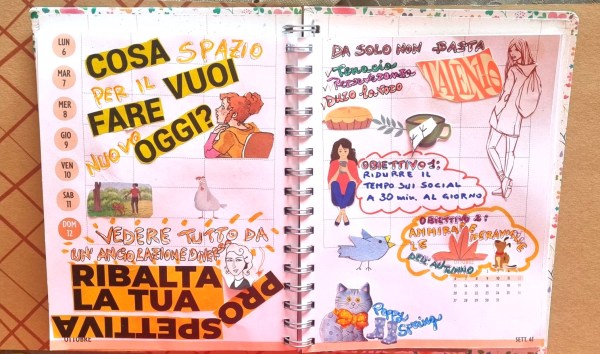 LUN
6
MAR
7
MER
8
GIO
9
VEN
10
SAB
11
DOM
12
COSA SPAZIO
PER IL VUOI
FARE
NUOVO OGGI?
VEDERE TUTTO DA
UN'ANGOLAZIONE DIVERSA
RIBALTA
LA TUA
PRO
SPETTIVA
OTTOBRE
DA SOLO NON BASTA
TALENTO
Tenacia
Perseveranza
Duro lavoro
OBIETTIVO 1:
RIDURRE IL
TEMPO SUI SOCIAL
A 30 min. AL GIORNO
OBIETTIVO 2:
AMMIRARE
LE MERAVIGLIE
DELL'AUTUNNO
SETT. 41